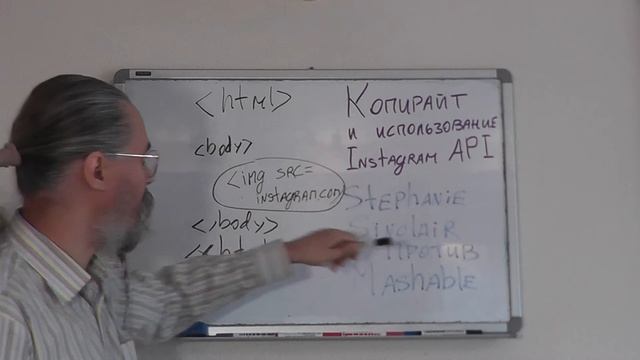 <html>
<body>
<img src=
instagram.com
</body>
Копирайт
и использование
Instagram API
Stephanie
Sinclair
против
Mashable